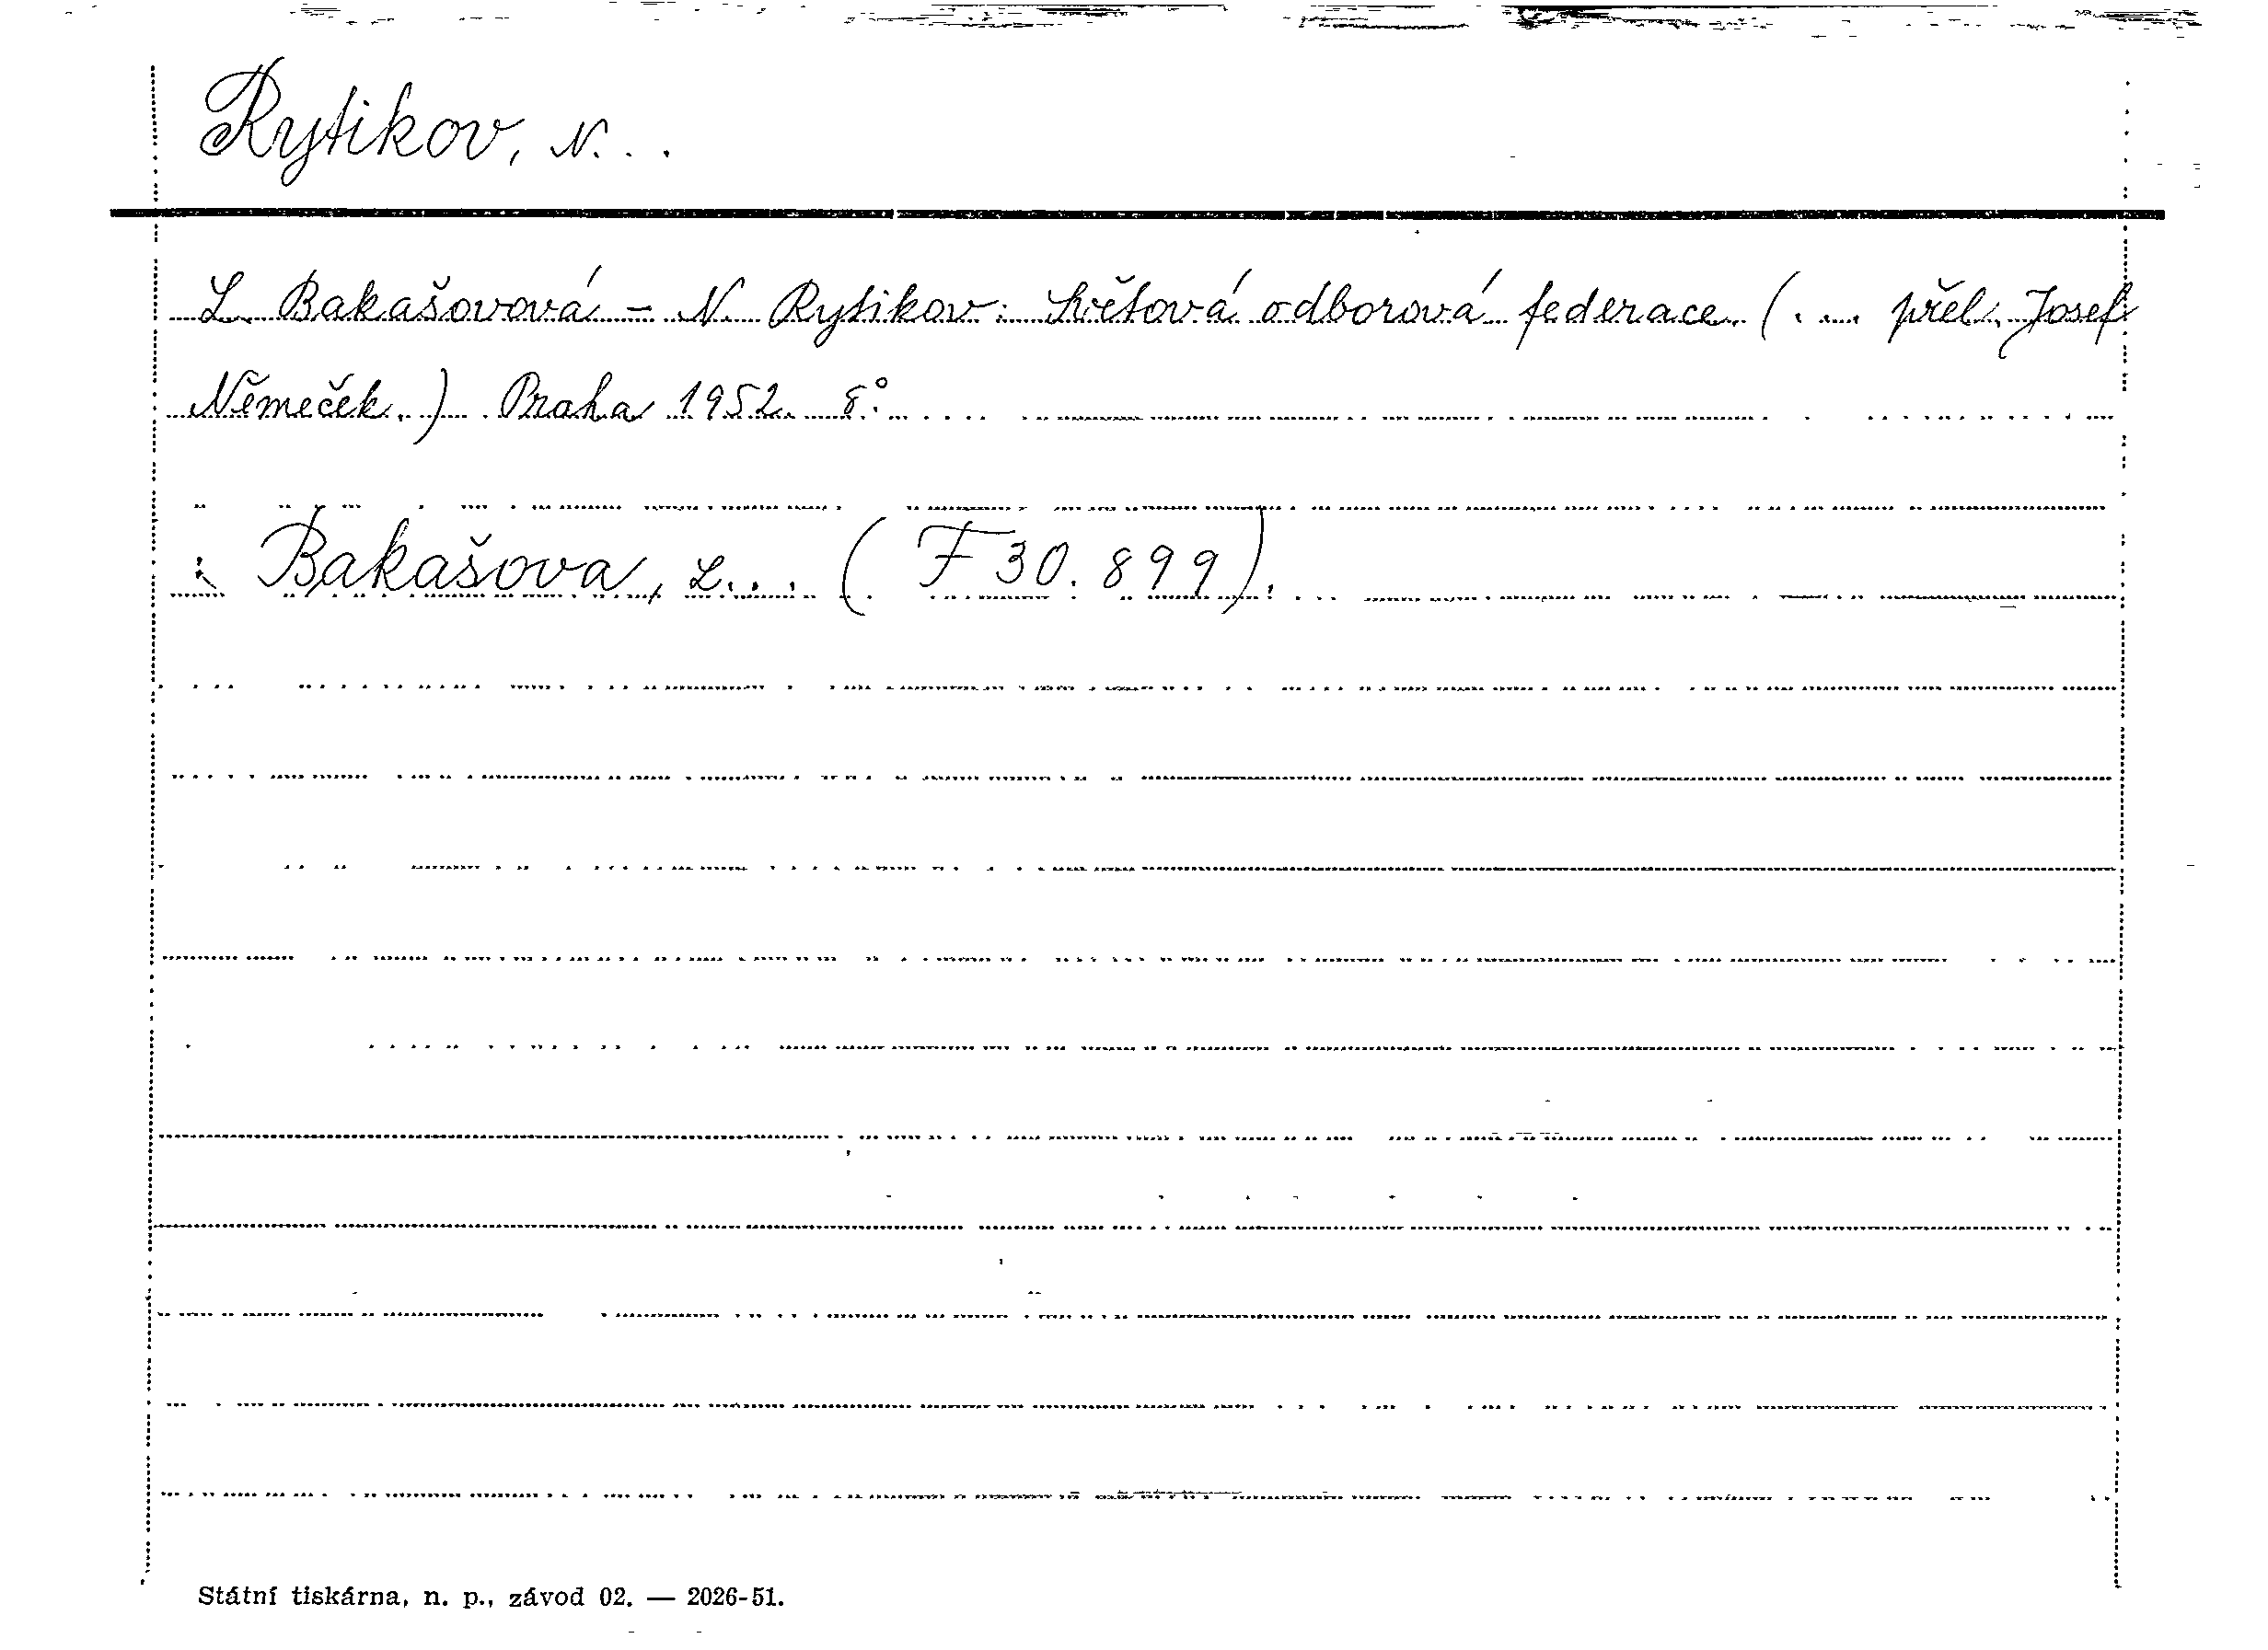 Rytikov, N. . .
L. Bakašovová – N. Rytikov: Světová odborová federace. (. ... přel. Josef
Němeček.) Praha 1952. 8°.
: Bakašova, L... ( F 30.899).
Státní tiskárna, n. p., závod 02. — 2026-51.